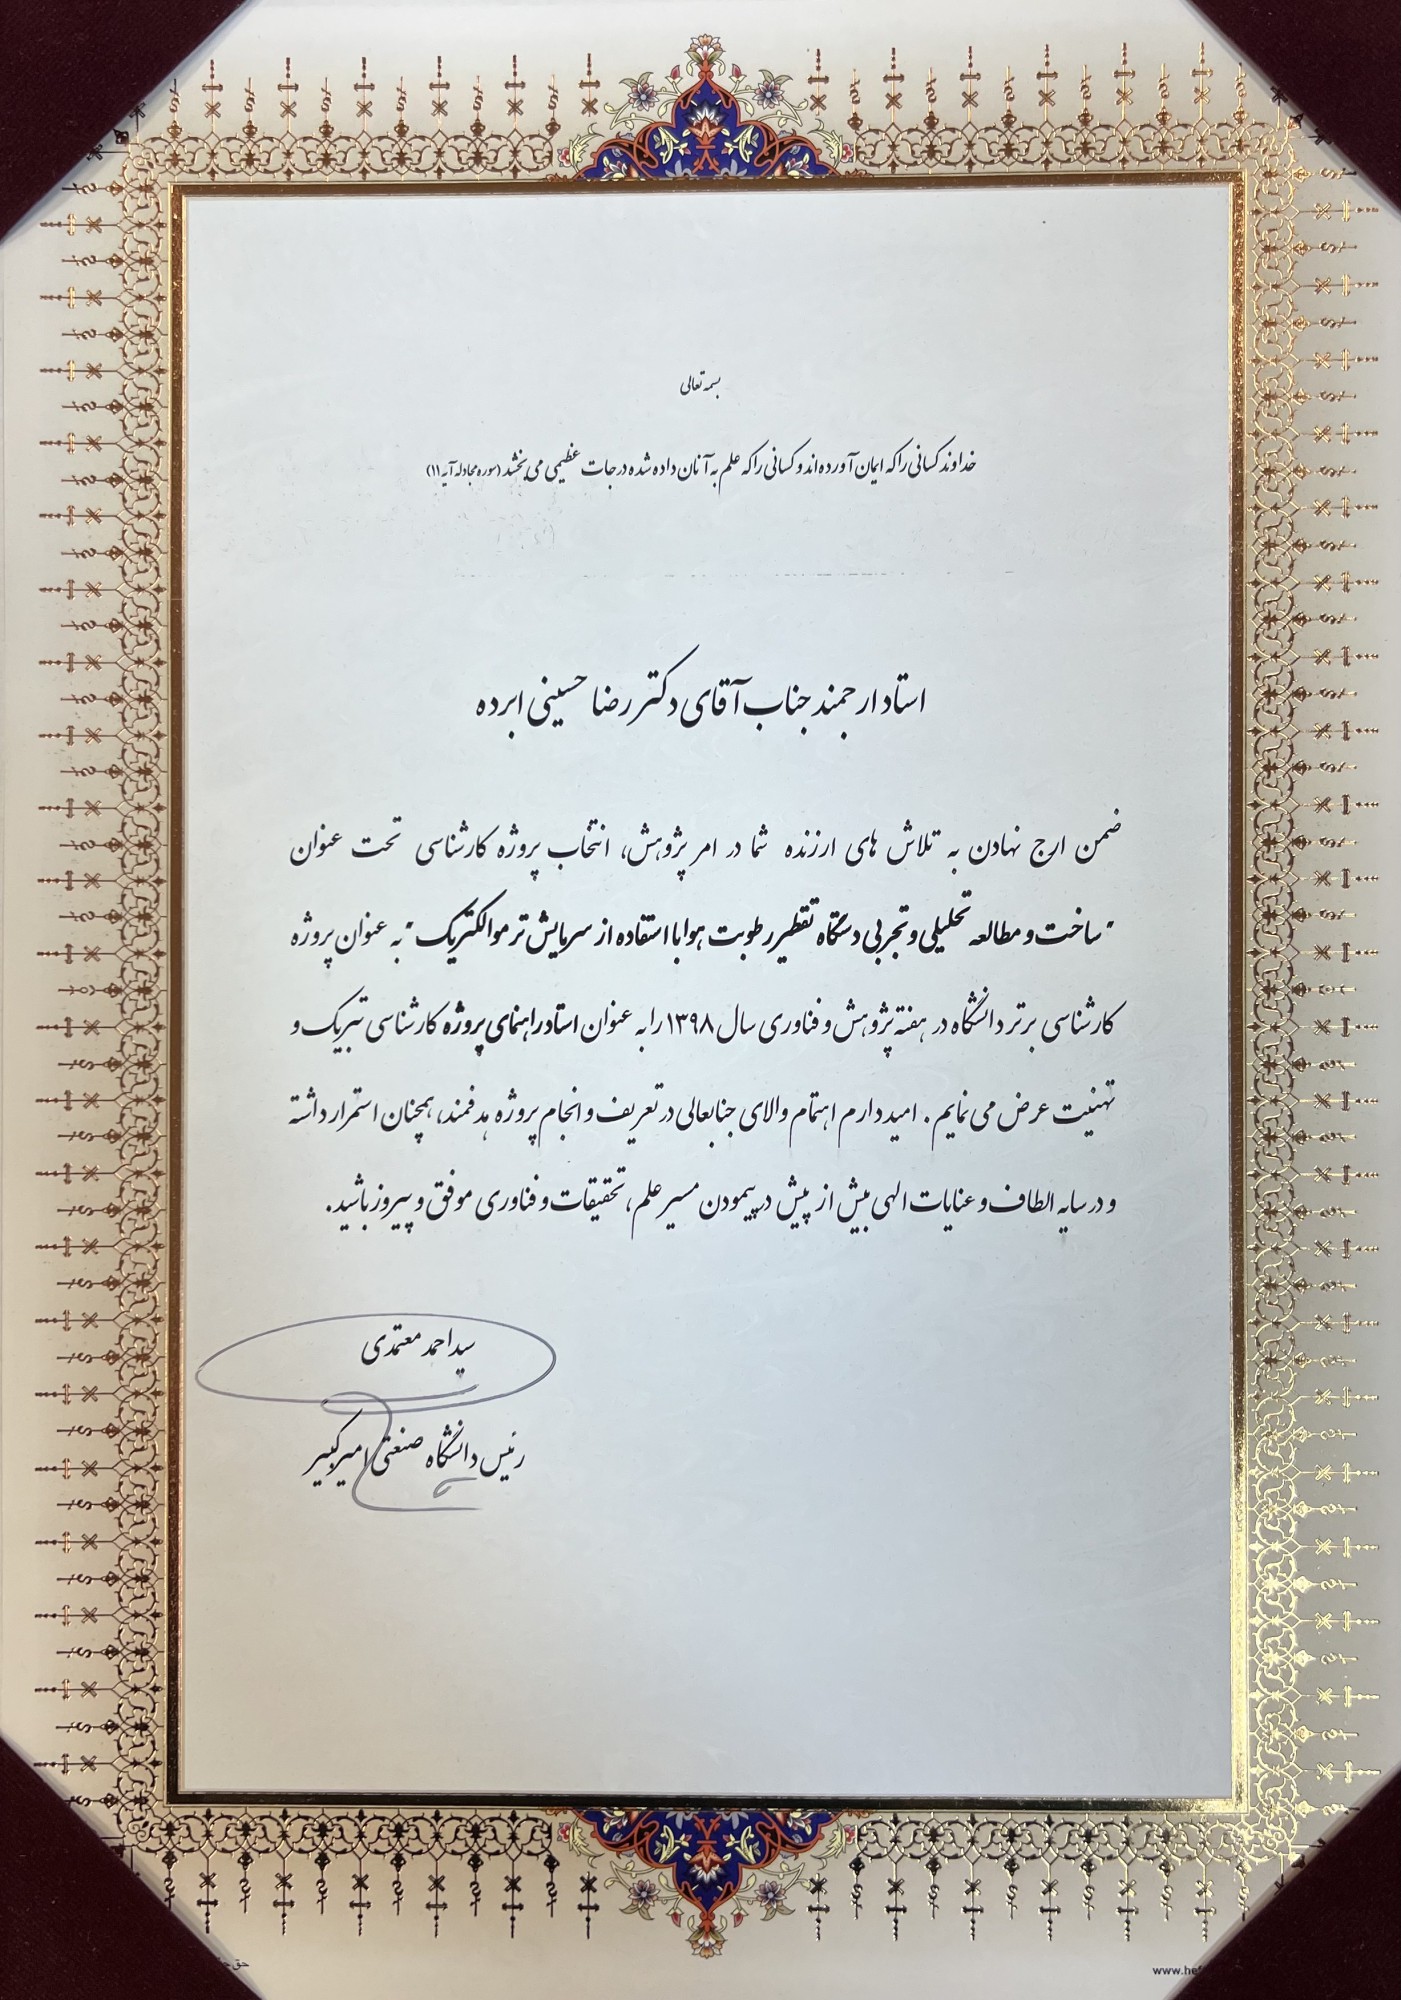 بسمه تعالی
خداوند کسانی را که ایمان آورده اند و کسانی را که علم به آنان داده شده درجات عظیمی می بخشد (سوره مجادله آیه ۱۱)
استاد ارجمند جناب آقای دکتر رضا حسینی ابرده
ضمن ارج نهادن به تلاش های ارزنده شما در امر پژوهش، انتخاب پروژه کارشناسی تحت عنوان
"ساخت و مطالعه تحلیلی و تجربی دستگاه تقطیر رطوبت هوا با استفاده از سرمایش ترموالکتریک" به عنوان پروژه
کارشناسی برتر دانشگاه در هفته پژوهش و فناوری سال ۱۳۹۸ را به عنوان استاد راهنمای پروژه کارشناسی تبریک و
تهنیت عرض می نمایم. امید دارم اهتمام والای جنابعالی در تعریف و انجام پروژه هدفمند، همچنان استمرار داشته
و در سایه الطاف و عنایات الهی بیش از پیش در پیمودن مسیر علم، تحقیقات و فناوری موفق و پیروز باشید.
سید احمد معتمدی
رئیس دانشگاه صنعتی امیرکبیر